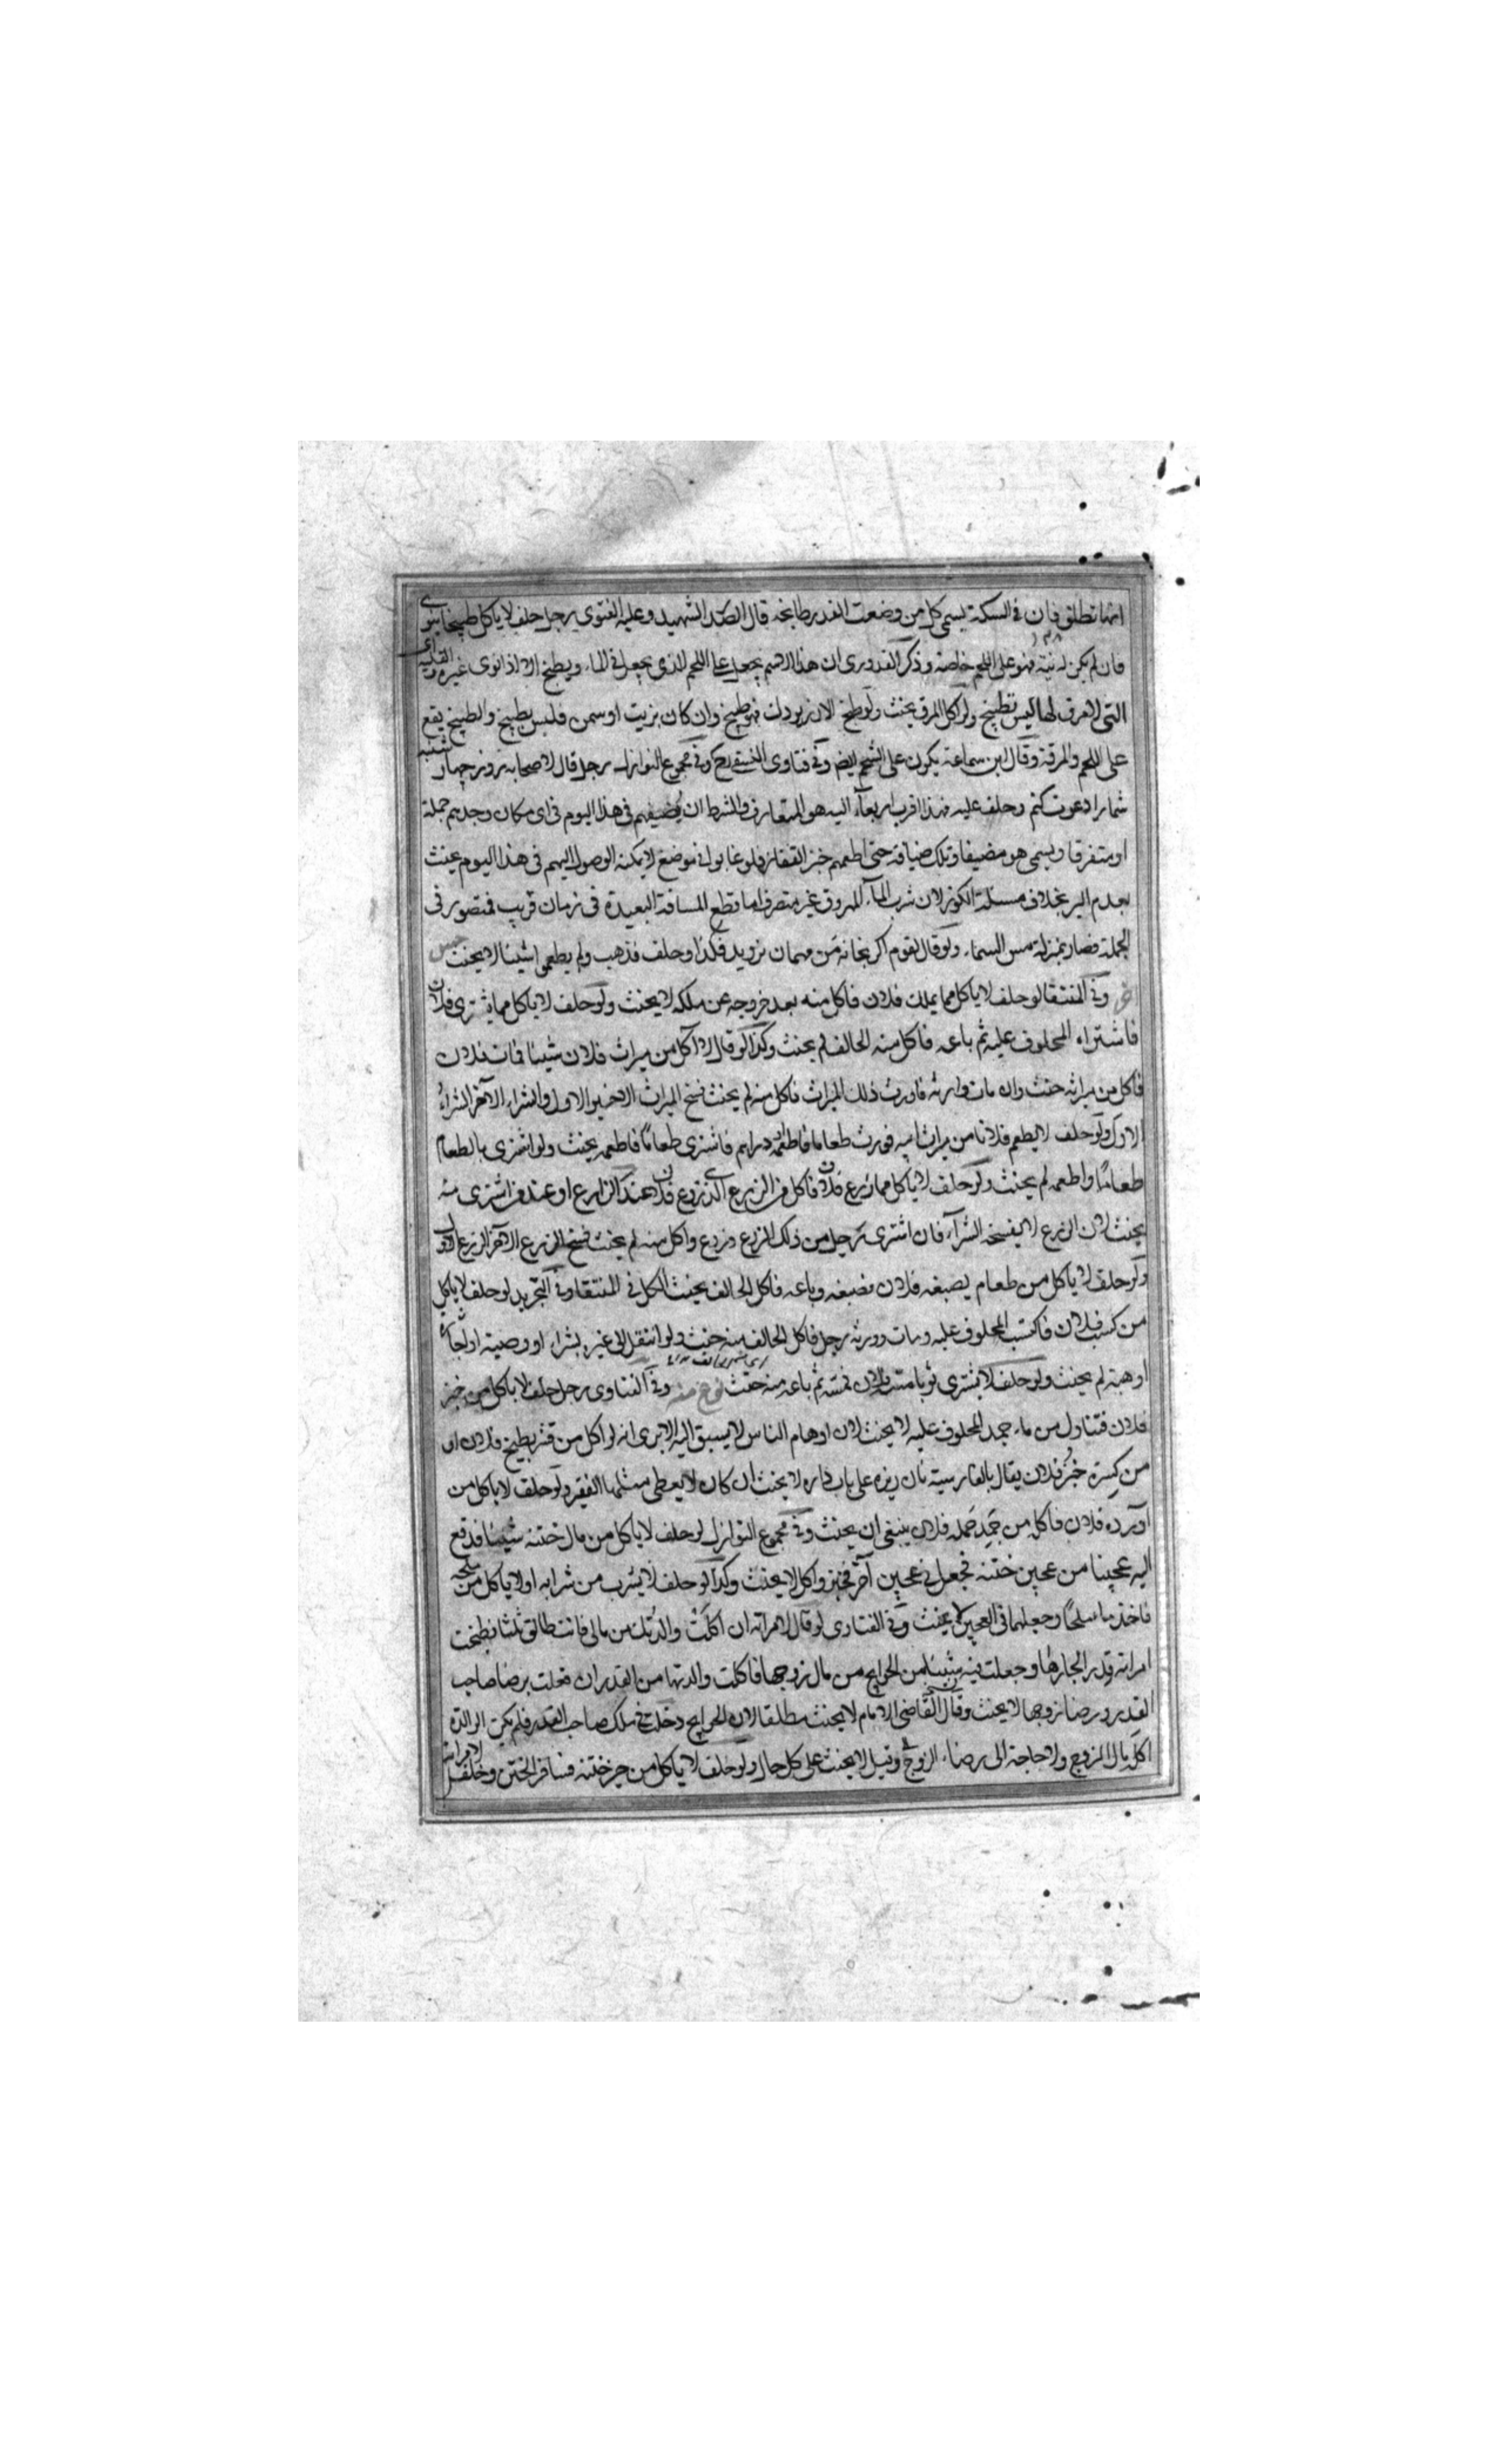 انها تطلق فان في السكة يسمى كل من وضعت القدر طابخة قال الصدر الشهيد وعليه الفتوى رجل حلف لا ياكل طبيخا
فان لم يكن له نية فهو على اللحم خاصة وذكر القدوري ان هذا الاسم يجعل على اللحم الذي يجعل في الماء ويطبخ الا اذا نوى غيره القلية
التي لا مرق لها ليس بطبيخ ولو اكل المرق يحنث ولو طبخ الارز بودك فهو طبيخ وان كان بزيت او سمن فليس بطبيخ والطبيخ يقع
على اللحم والمرقة وقال ابن سماعة يكون على الشحم ايضا وفي فتاوى وفي مجموع النوازل رجل قال لاصحابه روز چهار شنبه
شمارا دعوت كنم وحلف عليه فهذا اقرب اربعاء اليه هو المتعارف والشرط ان يضيفهم في هذا اليوم في اي مكان وجدهم جملة
او متفرقا ويسمى هو مضيفا وتلك ضيافة حتى اطعمهم خبز القفار فلو غابوا في موضع لا يمكنه الوصول اليهم في هذا اليوم يحنث
بعدم البر بخلاف مسئلة الكوز لان شرب الماء المهروق غير متصور اما قطع المسافة البعيدة في زمان قريب فمتصور في
الجملة فصار بمنزلة مس السماء ولو قال لقوم اكر بخانه من مهمان نرويد فكذا وحلف فذهب ولم يطعموا شيئا لا يحنث جنس
اخر وفي المنتقى لو حلف لا ياكل مما يملك فلان فاكل منه بعد خروجه عن ملكه لا يحنث ولو حلف لا ياكل مما يشتري فلان
فاشتراه المحلوف عليه ثم باعه فاكل منه الحالف لم يحنث وكذا لو قال لا اكل من ميراث فلان شيئا فمات فلان
فاكل من ميراثه حنث وان مات وارثه فاورث ذلك الميراث فاكل منه لم يحنث فسخ الميراث الاخير الاول والشراء الاخر الشراء
الاول ولو حلف لا يطعم فلانا من ميراث ابيه فورث طعاما فاطعمه دراهم فاشترى طعاما فاطعمه يحنث ولو اشترى بالطعام
طعاما واطعمه لم يحنث ولو حلف لا ياكل مما زرع فلان فاكل من الزرع الذي زرع فلان عند الزارع او عند من اشترى منه
يحنث لان الزرع لا يفسخه الشراء فان اشترى رجل من ذلك الزرع وزرع واكل منه لم يحنث فسخ الزرع الاخر الزرع الاول
ولو حلف لا ياكل من طعام يصبغه فلان فصبغه وباعه فاكل الحالف يحنث الكل في المنتقى وفي التجريد لو حلف لا ياكل
من كسب فلان فاكتسب المحلوف عليه ومات وورثه رجل فاكل الحالف منه حنث ولو انتقل الى غيره بشراء او وصية
او هبة لم يحنث ولو حلف لا يشتري ثوبا مسه فلان فمسه ثم باعه منه حنث نوع منه وفي الفتاوى رجل حلف لا ياكل من خبز
فلان فتناول من ماء جمد المحلوف عليه لا يحنث لان اوهام الناس لا يسبق اليه الا يرى انه لو اكل من قشر بطيخ فلان او
من كسرة خبز فلان يقال بالفارسية نان ريزه على باب داره لا يحنث ان كان لا يعطى مثلها الفقير ولو حلف لا ياكل من
آورده فلان فاكل من جمد حمله فلان ينبغي ان يحنث وفي مجموع النوازل لو حلف لا ياكل من مال ختنه شيئا فدفع
اليه عجينا من عجين ختنه فجعل في عجين آخر فخبز واكل لا يحنث وكذا لو حلف لا يشرب من شرابه او لا ياكل من ملحه
فاخذ ماء وملحا وجعلهما في العجين لا يحنث وفي الفتاوى لو قال لامراته ان اكلت والدتك من مالي فانت طالق ثلثا فطبخت
امراته قدر الجارها وجعلت فيه شيئا من الحوايج من مال زوجها فاكلت والدتها من القدر ان فعلت برضا صاحب
القدر ورضا زوجها لا يحنث وقال القاضي الامام لا يحنث مطلقا لان الحوايج دخلت في ملك صاحب القدر فلم يكن الوالدة
اكل مال الزوج ولا حاجة الى رضاء الزوج وقيل لا يحنث على كل حال ولو حلف لا ياكل من خبز ختنه فسافر الختن وخلف لامراته